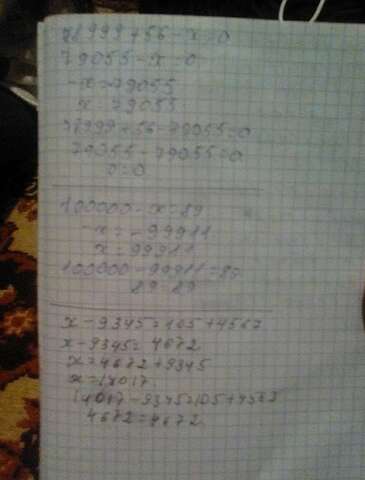 78999+56-x=0
79055-x=0
-x=-79055
x=79055
78999+56-79055=0
79055-79055=0
0=0
100000-x=89
-x=-99911
x=99911
100000-99911=89
89=89
x-9345=105+4567
x-9345=4672
x=4672+9345
x=14017
14017-9345=105+4567
4672=4672